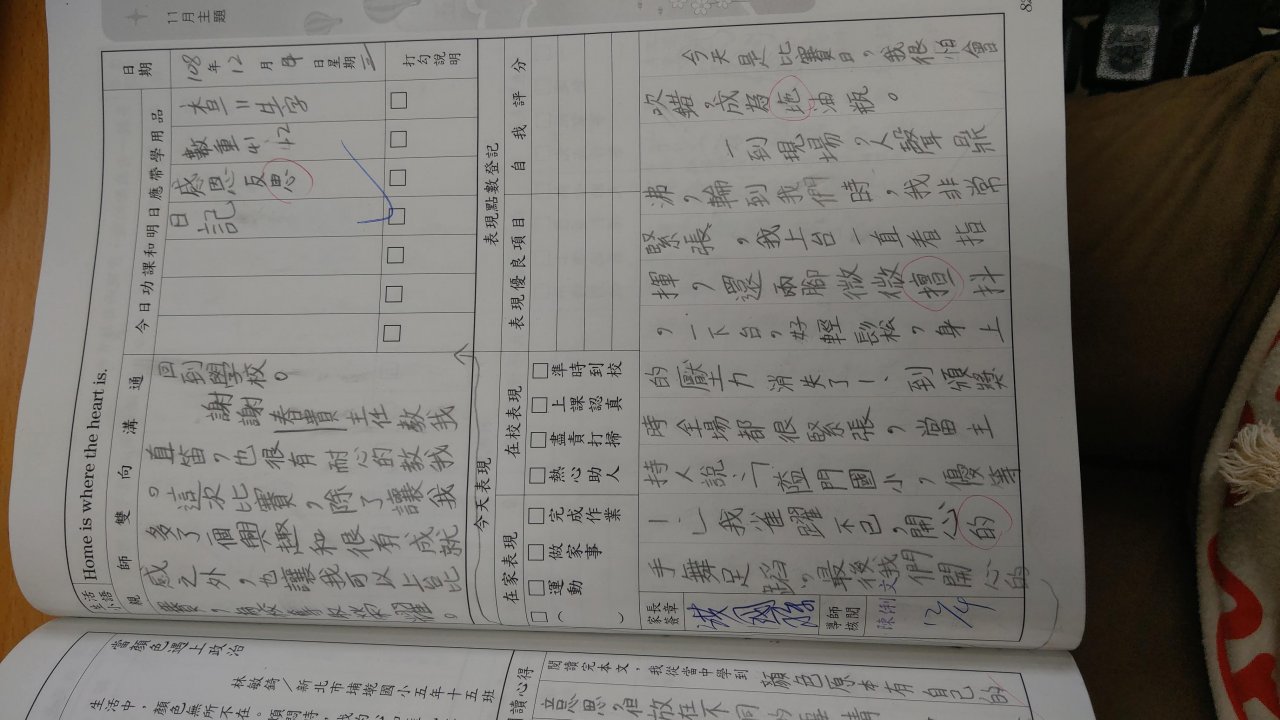 Home is where the heart is.
11月主題
日期
108年12月4日星期三
打勾說明
今日功課和明日應帶學用品
查III生字
數重外12
感恩反思
日記
親師雙向溝通
回到學校。
謝謝春貴主任教我
直笛,也很有耐心的教我
。這次比賽,除了讓我
多了一個興趣和很有成就
感之外,也讓我可以上台比
今天表現
在校表現
準時到校
上課認真
盡責打掃
熱心助人
在家表現
完成作業
做家事
運動
表現點數登記
自我評分
表現優良項目
今天是比賽日,我很怕會
吹錯,成為拖油瓶。
一到現場,人聲鼎
沸,輪到我們時,我非常
緊張,我上台一直看指
揮,還兩腳微微擅抖
,一下台,好輕鬆,身上
的壓力消失了!、到頒獎
時全場都很緊張,當主
持人說:「隘門國小,優等
!」我雀躍不已,開心的
手舞足蹈。最後我們開心的
家長簽章
導師核閱
12/4
當顏色遇上政治
林敏錡/新北市埔墘國小五年十五班
生活中,顏色無所不在。
讀心得
閱讀完本文,我從當中學到
顏色原本有自己的
意思,但放在不同